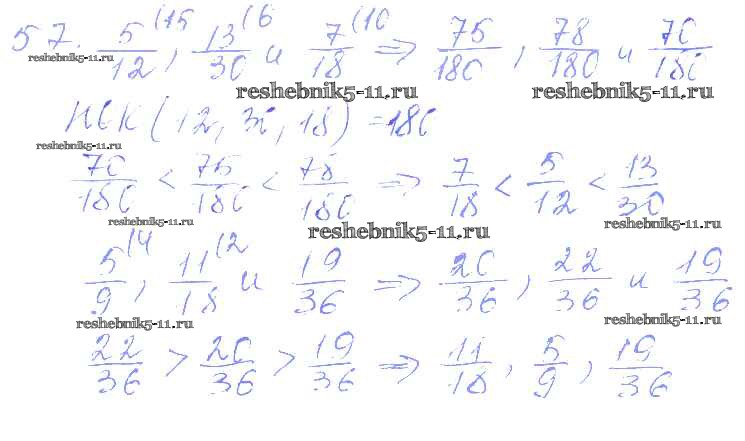 57. 5/12 (15, 13/30 (6 и 7/18 (10 => 75/180, 78/180 и 70/180
reshebnik5-11.ru
reshebnik5-11.ru reshebnik5-11.ru
НСК (12, 30, 18) = 180
reshebnik5-11.ru
70/180 < 75/180 < 78/180 => 7/18 < 5/12 < 13/30
reshebnik5-11.ru reshebnik5-11.ru
reshebnik5-11.ru
5/9 (4, 11/18 (2 и 19/36 => 20/36, 22/36 и 19/36
reshebnik5-11.ru reshebnik5-11.ru
22/36 > 20/36 > 19/36 => 11/18, 5/9, 19/36